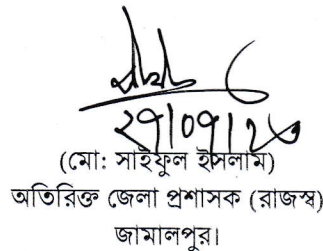 ২৭|০৭|২৩
(মো: সাইফুল ইসলাম)
অতিরিক্ত জেলা প্রশাসক (রাজস্ব)
জামালপুর।